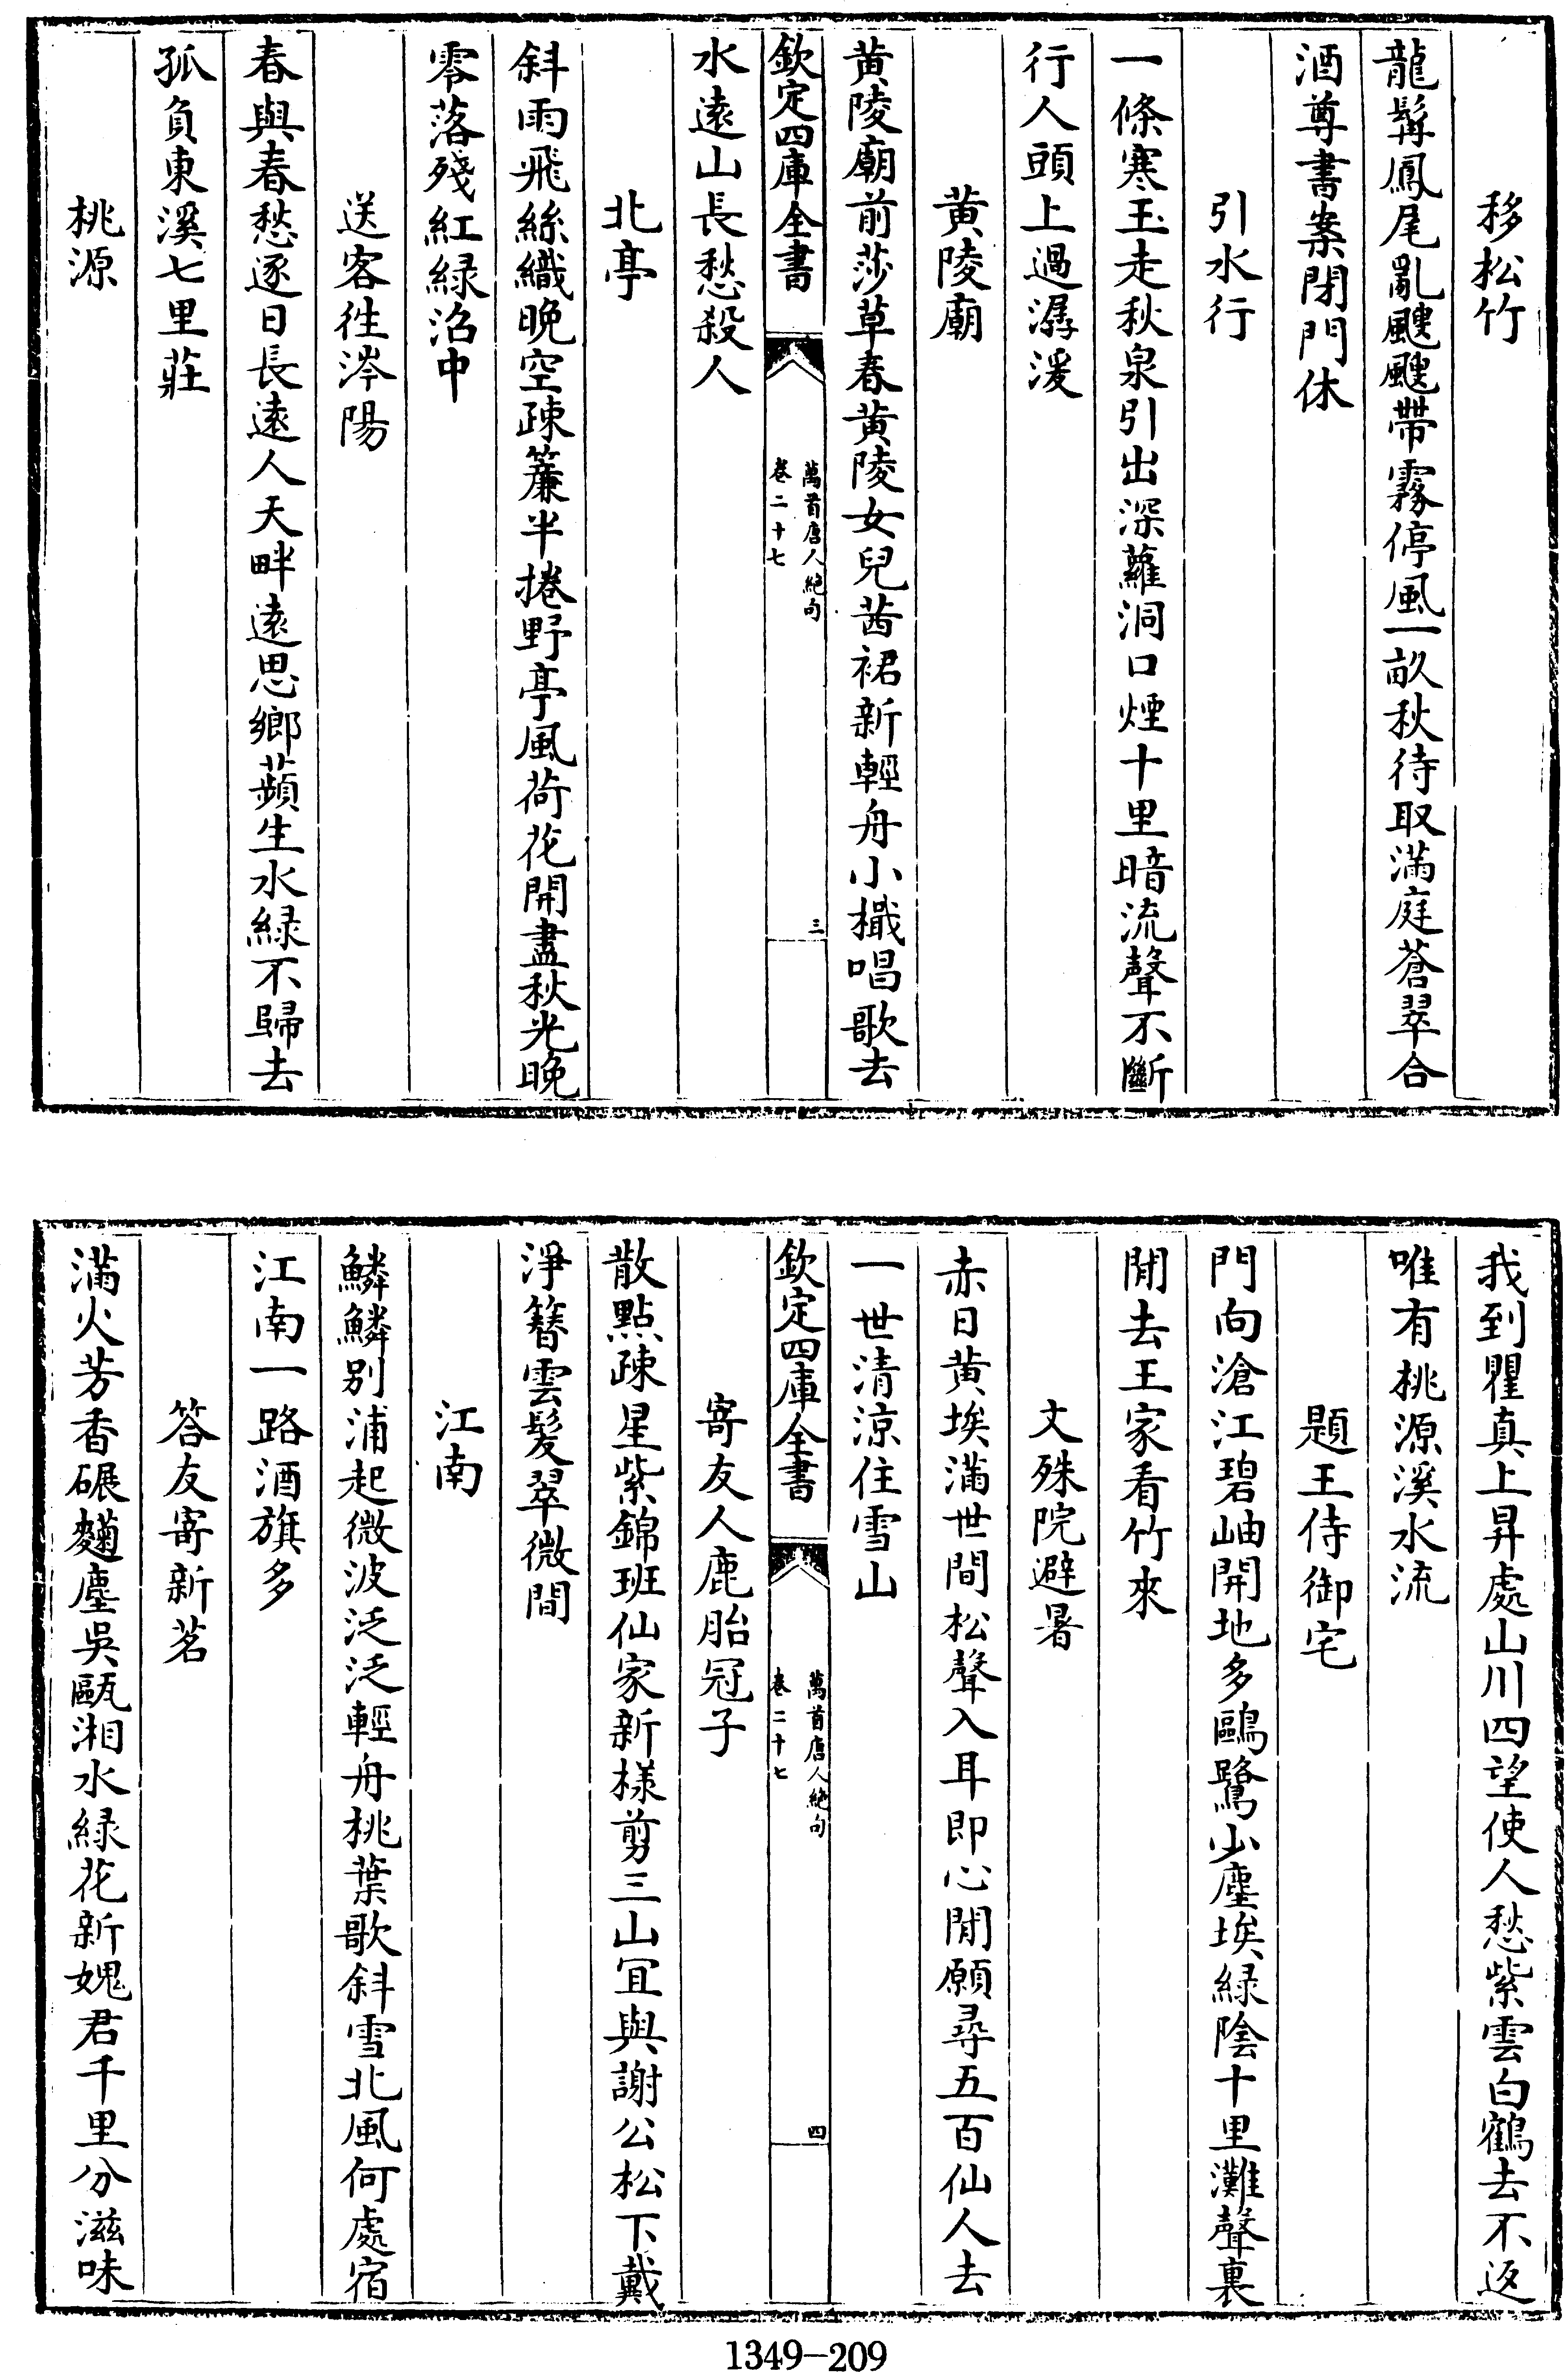 移松竹
龍髯鳳尾亂颼颼帶霧停風一畝秋待取滿庭蒼翠合
酒尊書案閉門休
引水行
一條寒玉走秋泉引出深蘿洞口煙十里暗流聲不斷
行人頭上過潺湲
黄陵廟
黄陵廟前莎草春黄陵女兒茜裙新輕舟小檝唱歌去
欽定四庫全書
萬首唐人絶句
卷二十七
三
水遠山長愁殺人
北亭
斜雨飛絲織晚空疎簾半捲野亭風荷花開盡秋光晚
零落殘紅緑沼中
送客徃涔陽
春與春愁逐日長遠人天畔遠思鄉蘋生水緑不歸去
孤負東溪七里莊
桃源
我到瞿真上昇處山川四望使人愁紫雲白鶴去不返
唯有桃源溪水流
題王侍御宅
門向滄江碧岫開地多鷗鷺少塵埃緑陰十里灘聲裏
閒去王家看竹來
文殊院避暑
赤日黄埃滿世間松聲入耳即心閒願尋五百仙人去
一世清涼住雪山
欽定四庫全書
萬首唐人絶句
卷二十七
四
寄友人鹿胎冠子
散點疎星紫錦班仙家新様剪三山宜與謝公松下戴
淨簪雲髮翠微間
江南
鱗鱗别浦起微波泛泛輕舟桃葉歌斜雪北風何處宿
江南一路酒旗多
答友寄新茗
滿火芳香碾麴塵吳甌湘水緑花新媿君千里分滋味
1349-209